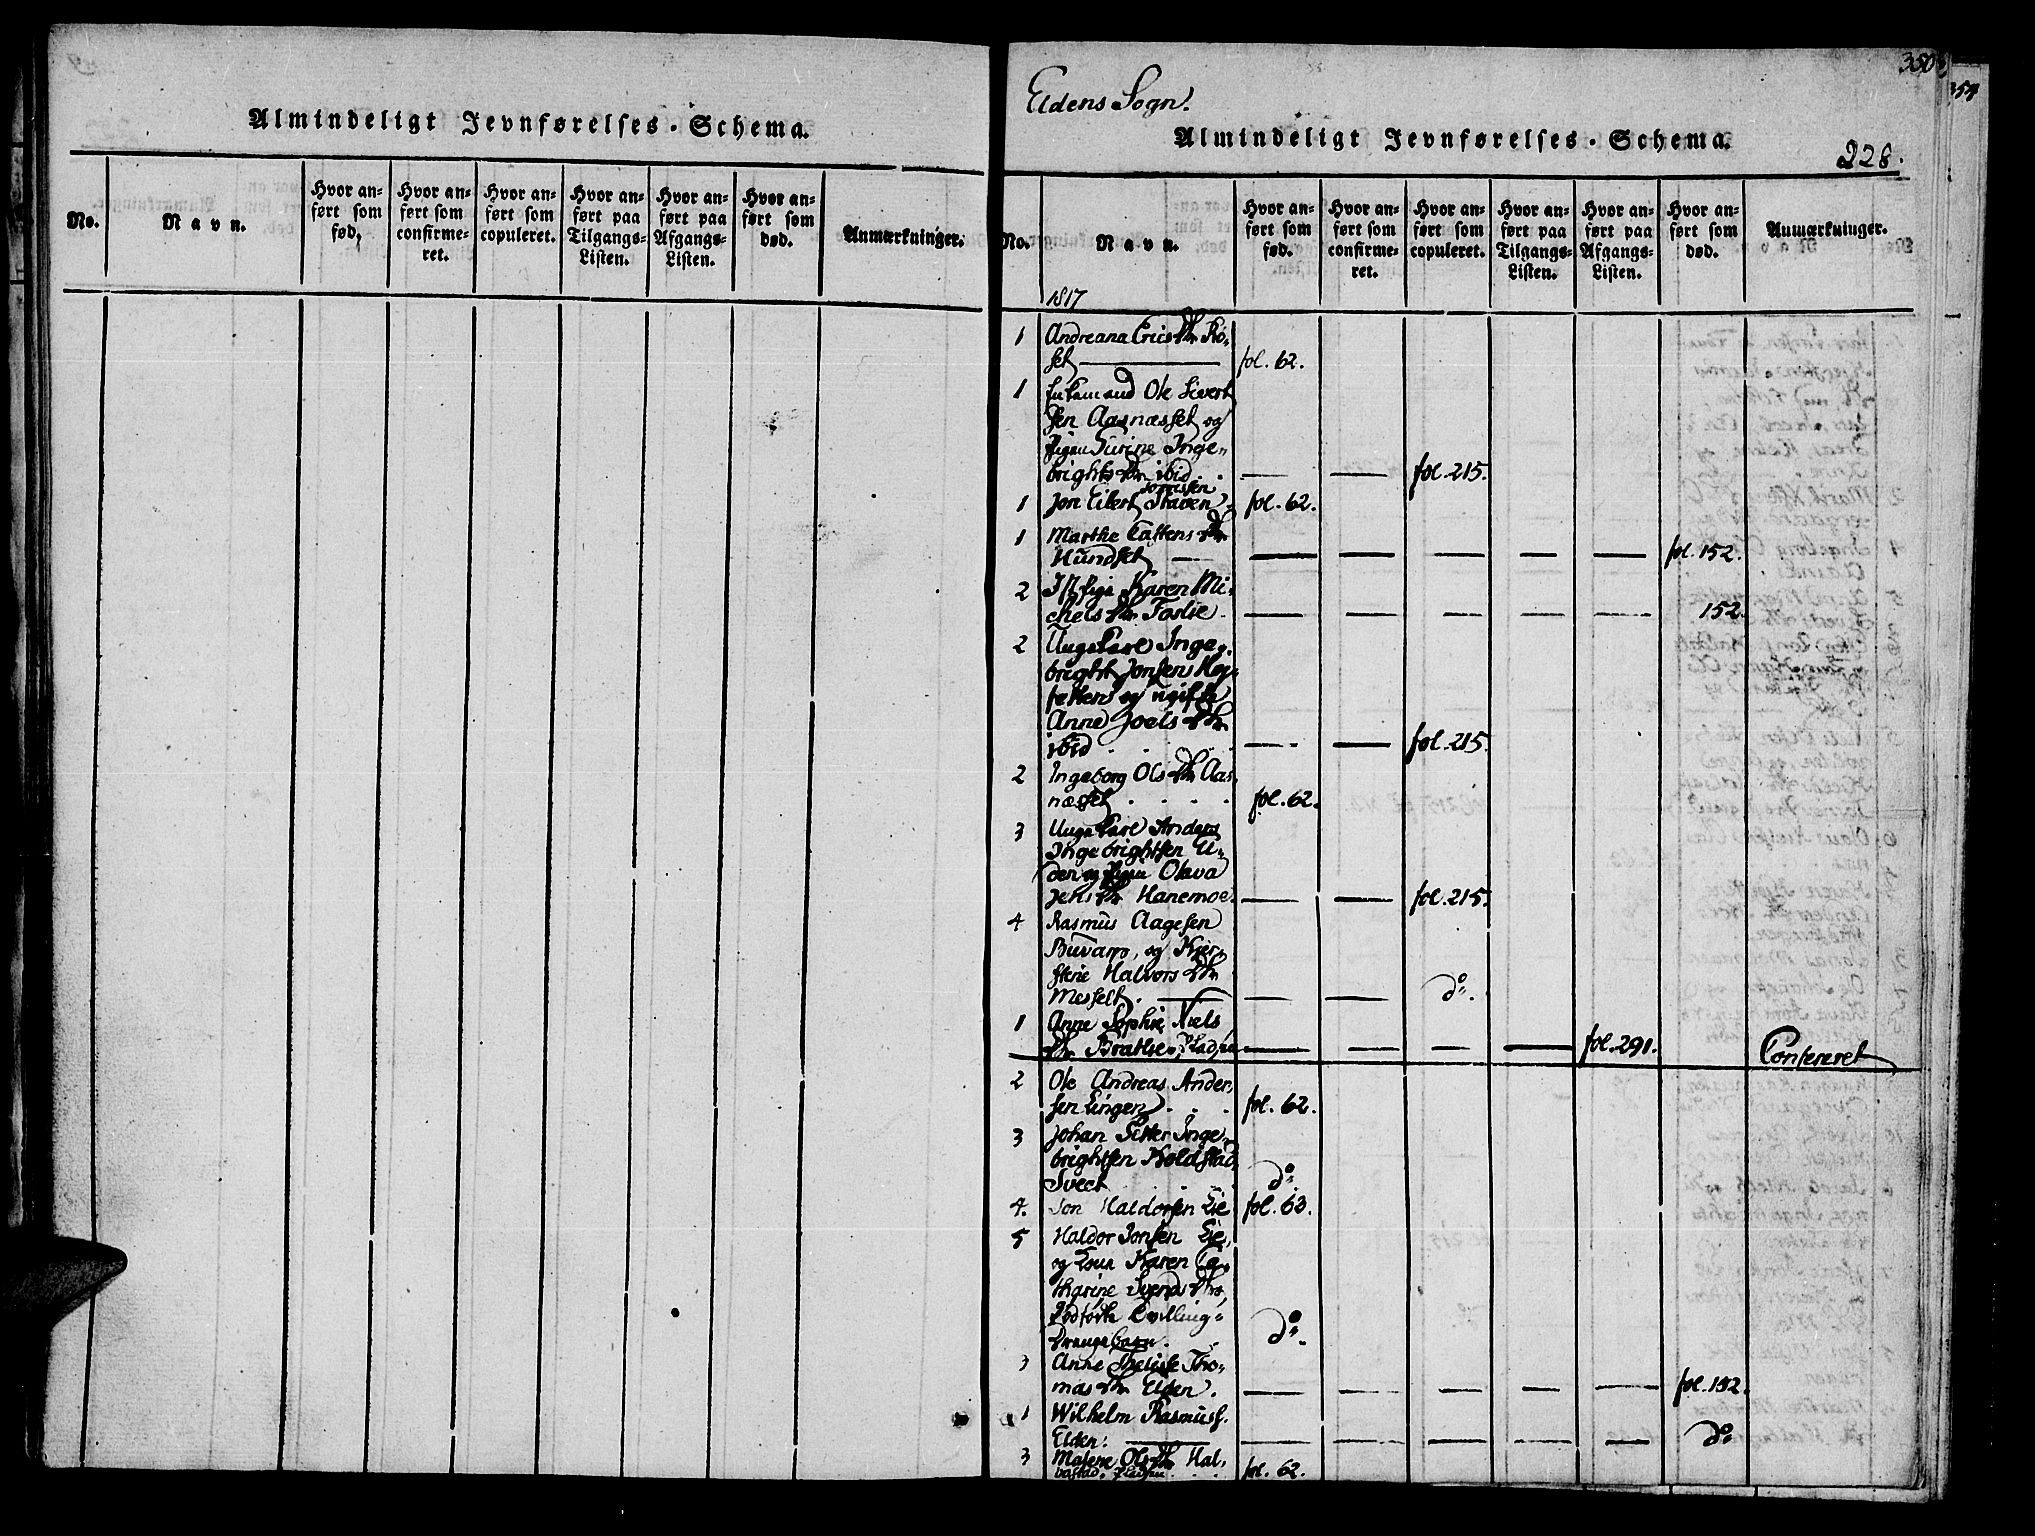 Almindeligt Jevnførelses-Schema.
No.
Navn.
Hvor an-
ført som
fød.
Hvor an-
ført som
confirme-
ret.
Hvor an-
ført som
copuleret.
Hvor an-
ført paa
Tilgangs-
Listen.
Hvor an-
ført paa
Afgangs-
Listen.
Hvor an-
ført som
død.
Anmærkninger.
350
354
Eldens Sogn.
Almindeligt Jevnførelses-Schema.
228.
No.
Navn.
Hvor an-
ført som
fød.
Hvor an-
ført som
confirme-
ret.
Hvor an-
ført som
copuleret.
Hvor an-
ført paa
Tilgangs-
Listen.
Hvor an-
ført paa
Afgangs-
Listen.
Hvor an-
ført som
død.
Anmærkninger.
1817
1 Andreana Erics
set fol. 62.
1 Enkemand Ole Sivert
sen Aasnæsset og
Pigen Inge-
brights ibid fol. 215.
1 Jon Eilert fol. 62.
1 Marthe
Hundset fol. 152.
2 Karen Mi-
chels Foslie 152.
2 Unge Karl Inge-
bright Jonsen
og ugifte
Anne Joels
ibid fol. 215.
2 Ingeborg Ols Aas-
næsset fol. 62.
3 Unge Karl Anders
Ingebrightsen U-
den og Pigen Olava
Jens Hanemoe fol. 215.
4 Rasmus Aagesen
Buvarp, og Kjer-
stene Halvors
Messelt. do.
1 Anne Sophie Niels
Pladsen fol. 291. Confereret
2 Ole Andreas Ander-
sen fol. 62.
3 Johan Petter Inge-
brightsen Koldstad
do.
4. Jon Haldorsen Lie fol. 63.
5 Haldor Jonsen Lie,
og Kone Karen Ca-
tharine Svends
Dødfødte Tvilling-
Drengebarn. do.
3 Anne Tho-
mas Elden. fol. 152.
1 Wilhelm Rasmuss.
Elden. do
3 Malene Ols Hal-
Pladsen fol. 62.